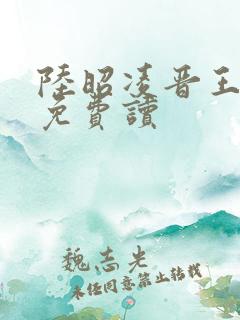 陸昭凌晋王
免費讀
魏志光
未经同意禁止转载